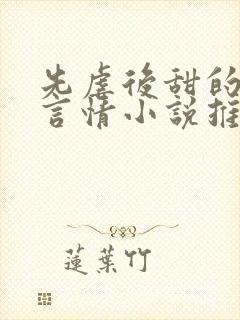 先虐後甜的
言情小說推
蓮葉竹